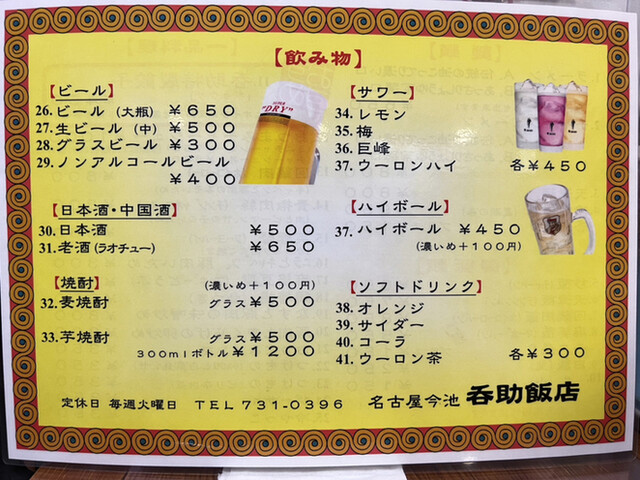 【飲み物】
【ビール】
26. ビール (大瓶) ￥650
27. 生ビール (中) ￥500
28. グラスビール ￥300
29. ノンアルコールビール
￥400
【日本酒・中国酒】
30. 日本酒 ￥500
31. 老酒(ラオチュー) ￥650
【焼酎】 (濃いめ+100円)
32. 麦焼酎 グラス￥500
33. 芋焼酎 グラス￥500
300mlボトル￥1200
【サワー】
34. レモン
35. 梅
36. 巨峰
37. ウーロンハイ 各￥450
【ハイボール】
37. ハイボール ￥450
(濃いめ+100円)
【ソフトドリンク】
38. オレンジ
39. サイダー
40. コーラ
41. ウーロン茶 各￥300
定休日 毎週火曜日 TEL 731-0396 名古屋今池 呑助飯店
"DRY"